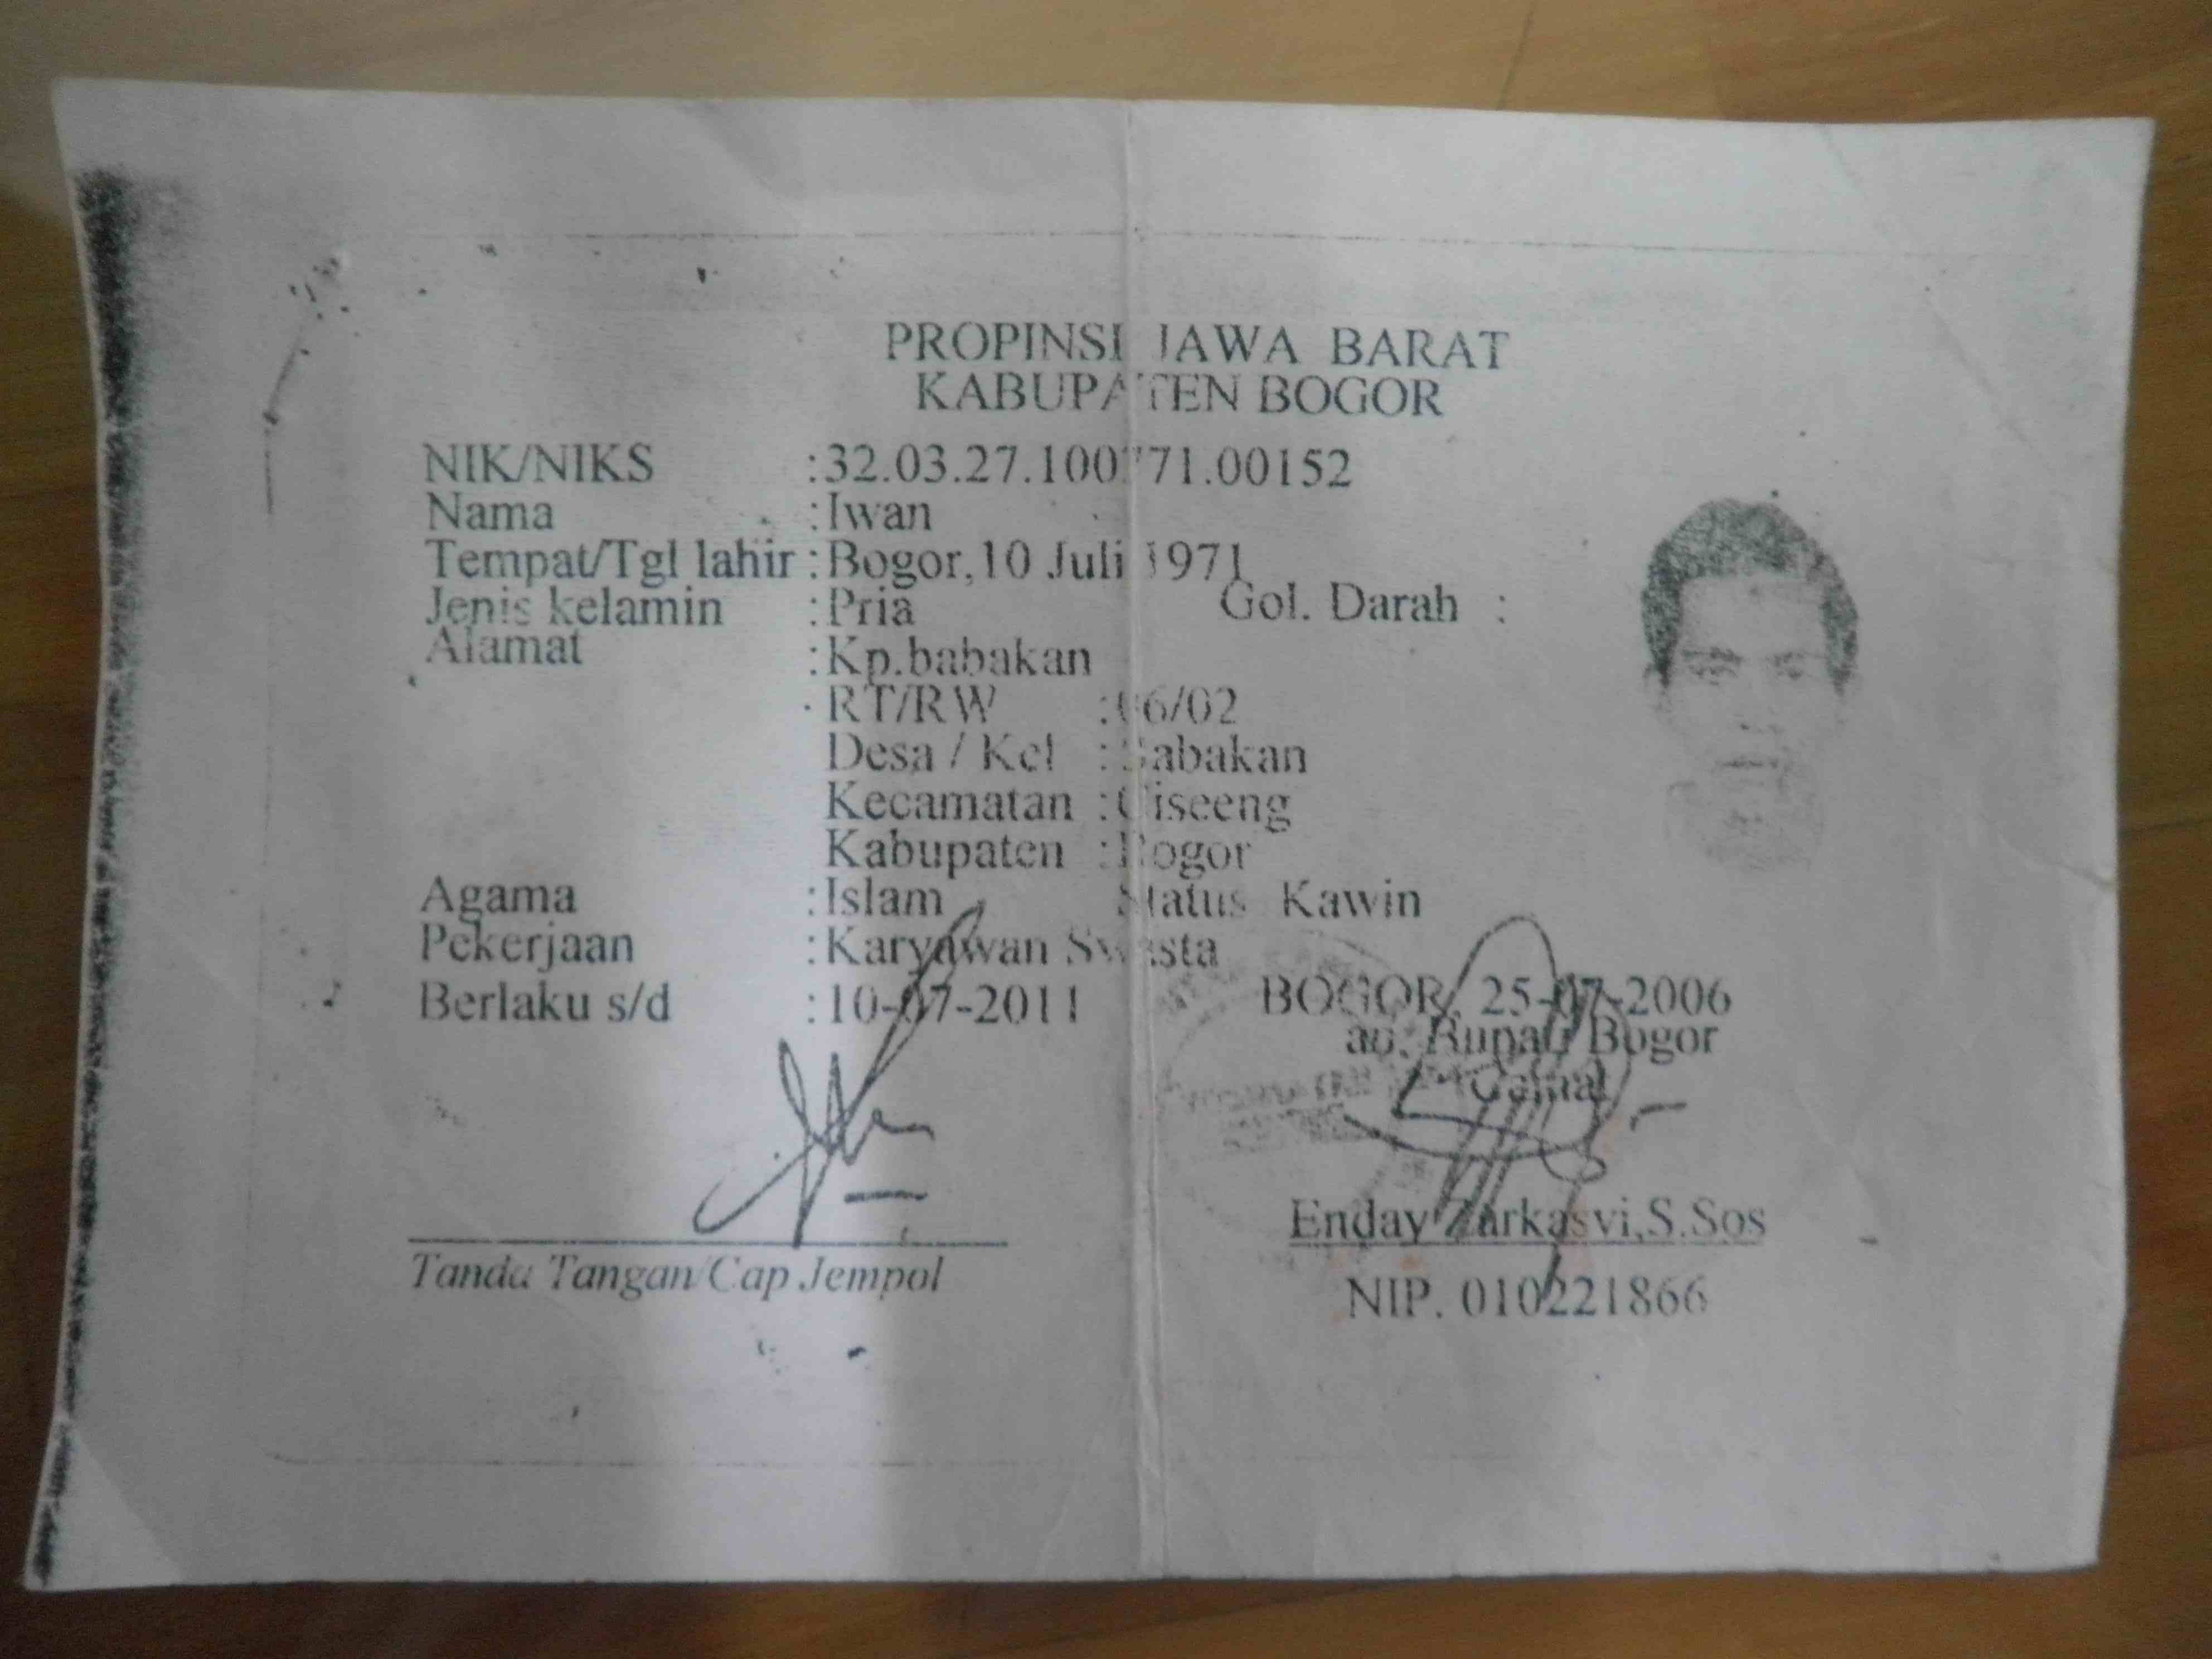 PROPINSI JAWA BARAT
KABUPATEN BOGOR
NIK/NIKS :32.03.27.100771.00152
Nama :Iwan
Tempat/Tgl lahir :Bogor,10 Juli 1971
Jenis kelamin :Pria Gol. Darah :
Alamat :Kp.babakan
RT/RW :06/02
Desa / Kel :Babakan
Kecamatan :Ciseeng
Kabupaten :Bogor
Agama :Islam Status Kawin
Pekerjaan :Karyawan Swasta
Berlaku s/d :10-07-2011 BOGOR, 25-07-2006
an. Bupati Bogor
Camat
Enday Zarkasyi,S.Sos
Tanda Tangan/Cap Jempol
NIP. 010221866